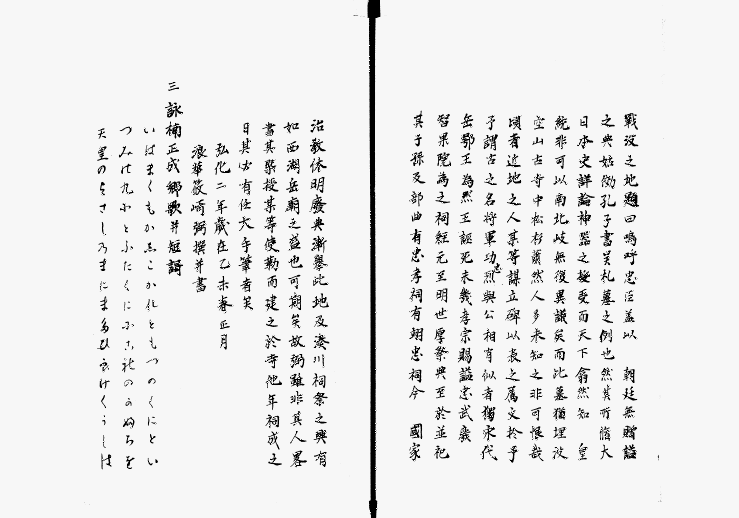 戰沒之地題曰嗚呼忠臣蓋以　朝廷無贈諡
之典姑倣孔子書吳札墓之例也然其所儋大
日本史詳論神器之授受而天下翕然知　皇
統非可以南北岐無復異議矣而此墓猶埋沒
空山古寺中松杉蕭然人多未知之非可恨哉
頃者近地之人某等謀立碑以表之属文於予
予謂古之名將軍功忠烈與公相肖似者獨宋代
岳鄂王為然王誣死未幾孝宗賜諡忠武襃
智果院為之祠經元至明世厚祭典至於並祀
其子孫及部曲有忠孝祠有翊忠祠今　國家
治教休明廢典漸擧此地及湊川祠祭之興有
如西湖岳廟之盛也可期矣故弼雖非其人畧
書其槩授某等使勒而建之於寺他年祠成之
日其必有任大手筆者矣
弘化二年歲在乙未春正月
浪華篠崎弼撰并書
三　詠楠正成鄉歌并短謌
いはまくもかしこかれともつのくにとい
つみの九にとふたくににふさ
天皇のよさしのまにまたひ